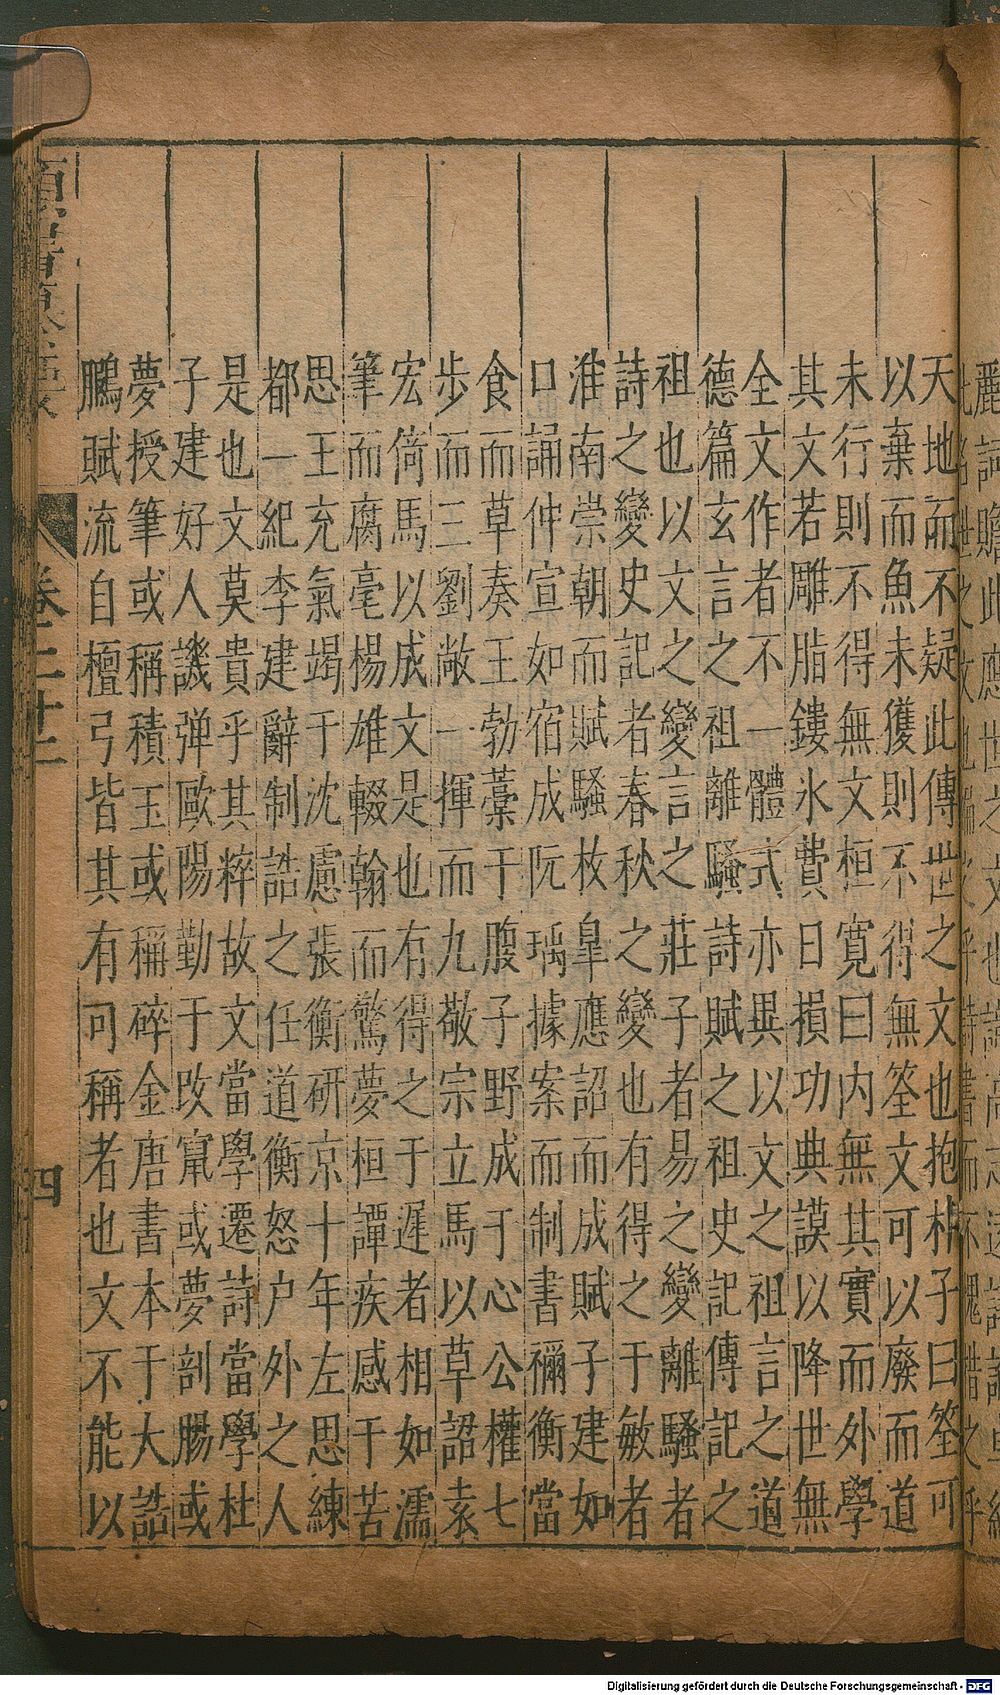 天地而不疑此傳世之文也抱朴子曰筌可
以棄而魚未獲則不得無筌文可以廢而道
未行則不得無文桓寬曰内無其實而外學
其文若雕脂鏤氷費日損功典謨以降世無
全文作者不一體式亦異以文之祖言之道
德篇玄言之祖離騷詩賦之祖史記傳記之
祖也以文之變言之莊子者易之變離騷者
詩之變史記者春秋之變也有得之于敏者
淮南崇朝而賦騷枚臯應詔而成賦子建如
口誦仲宣如宿成阮瑀據案而制書禰衡當
食而草奏王勃藁于腹子野成于心公權七
步而三劉敞一揮而九敬宗立馬以草詔袁
宏倚馬以成文是也有得之于遲者相如濡
筆而腐毫楊雄輟翰而驚夢桓譚疾感于苦
思王充氣竭于沈慮張衡研京十年左思練
都一紀李建辭制誥之任道衡怒户外之人
是也文莫貴乎其粹故文當學遷詩當學杜
子建好人譏弹歐陽勤于改竄或夢剖腸或
夢授筆或稱積玉或稱碎金唐書本于大誥
鵩賦流自檀弓皆其有可稱者也文不能以
卷二十二
四
Digitalisierung gefördert durch die Deutsche Forschungsgemeinschaft - DFG